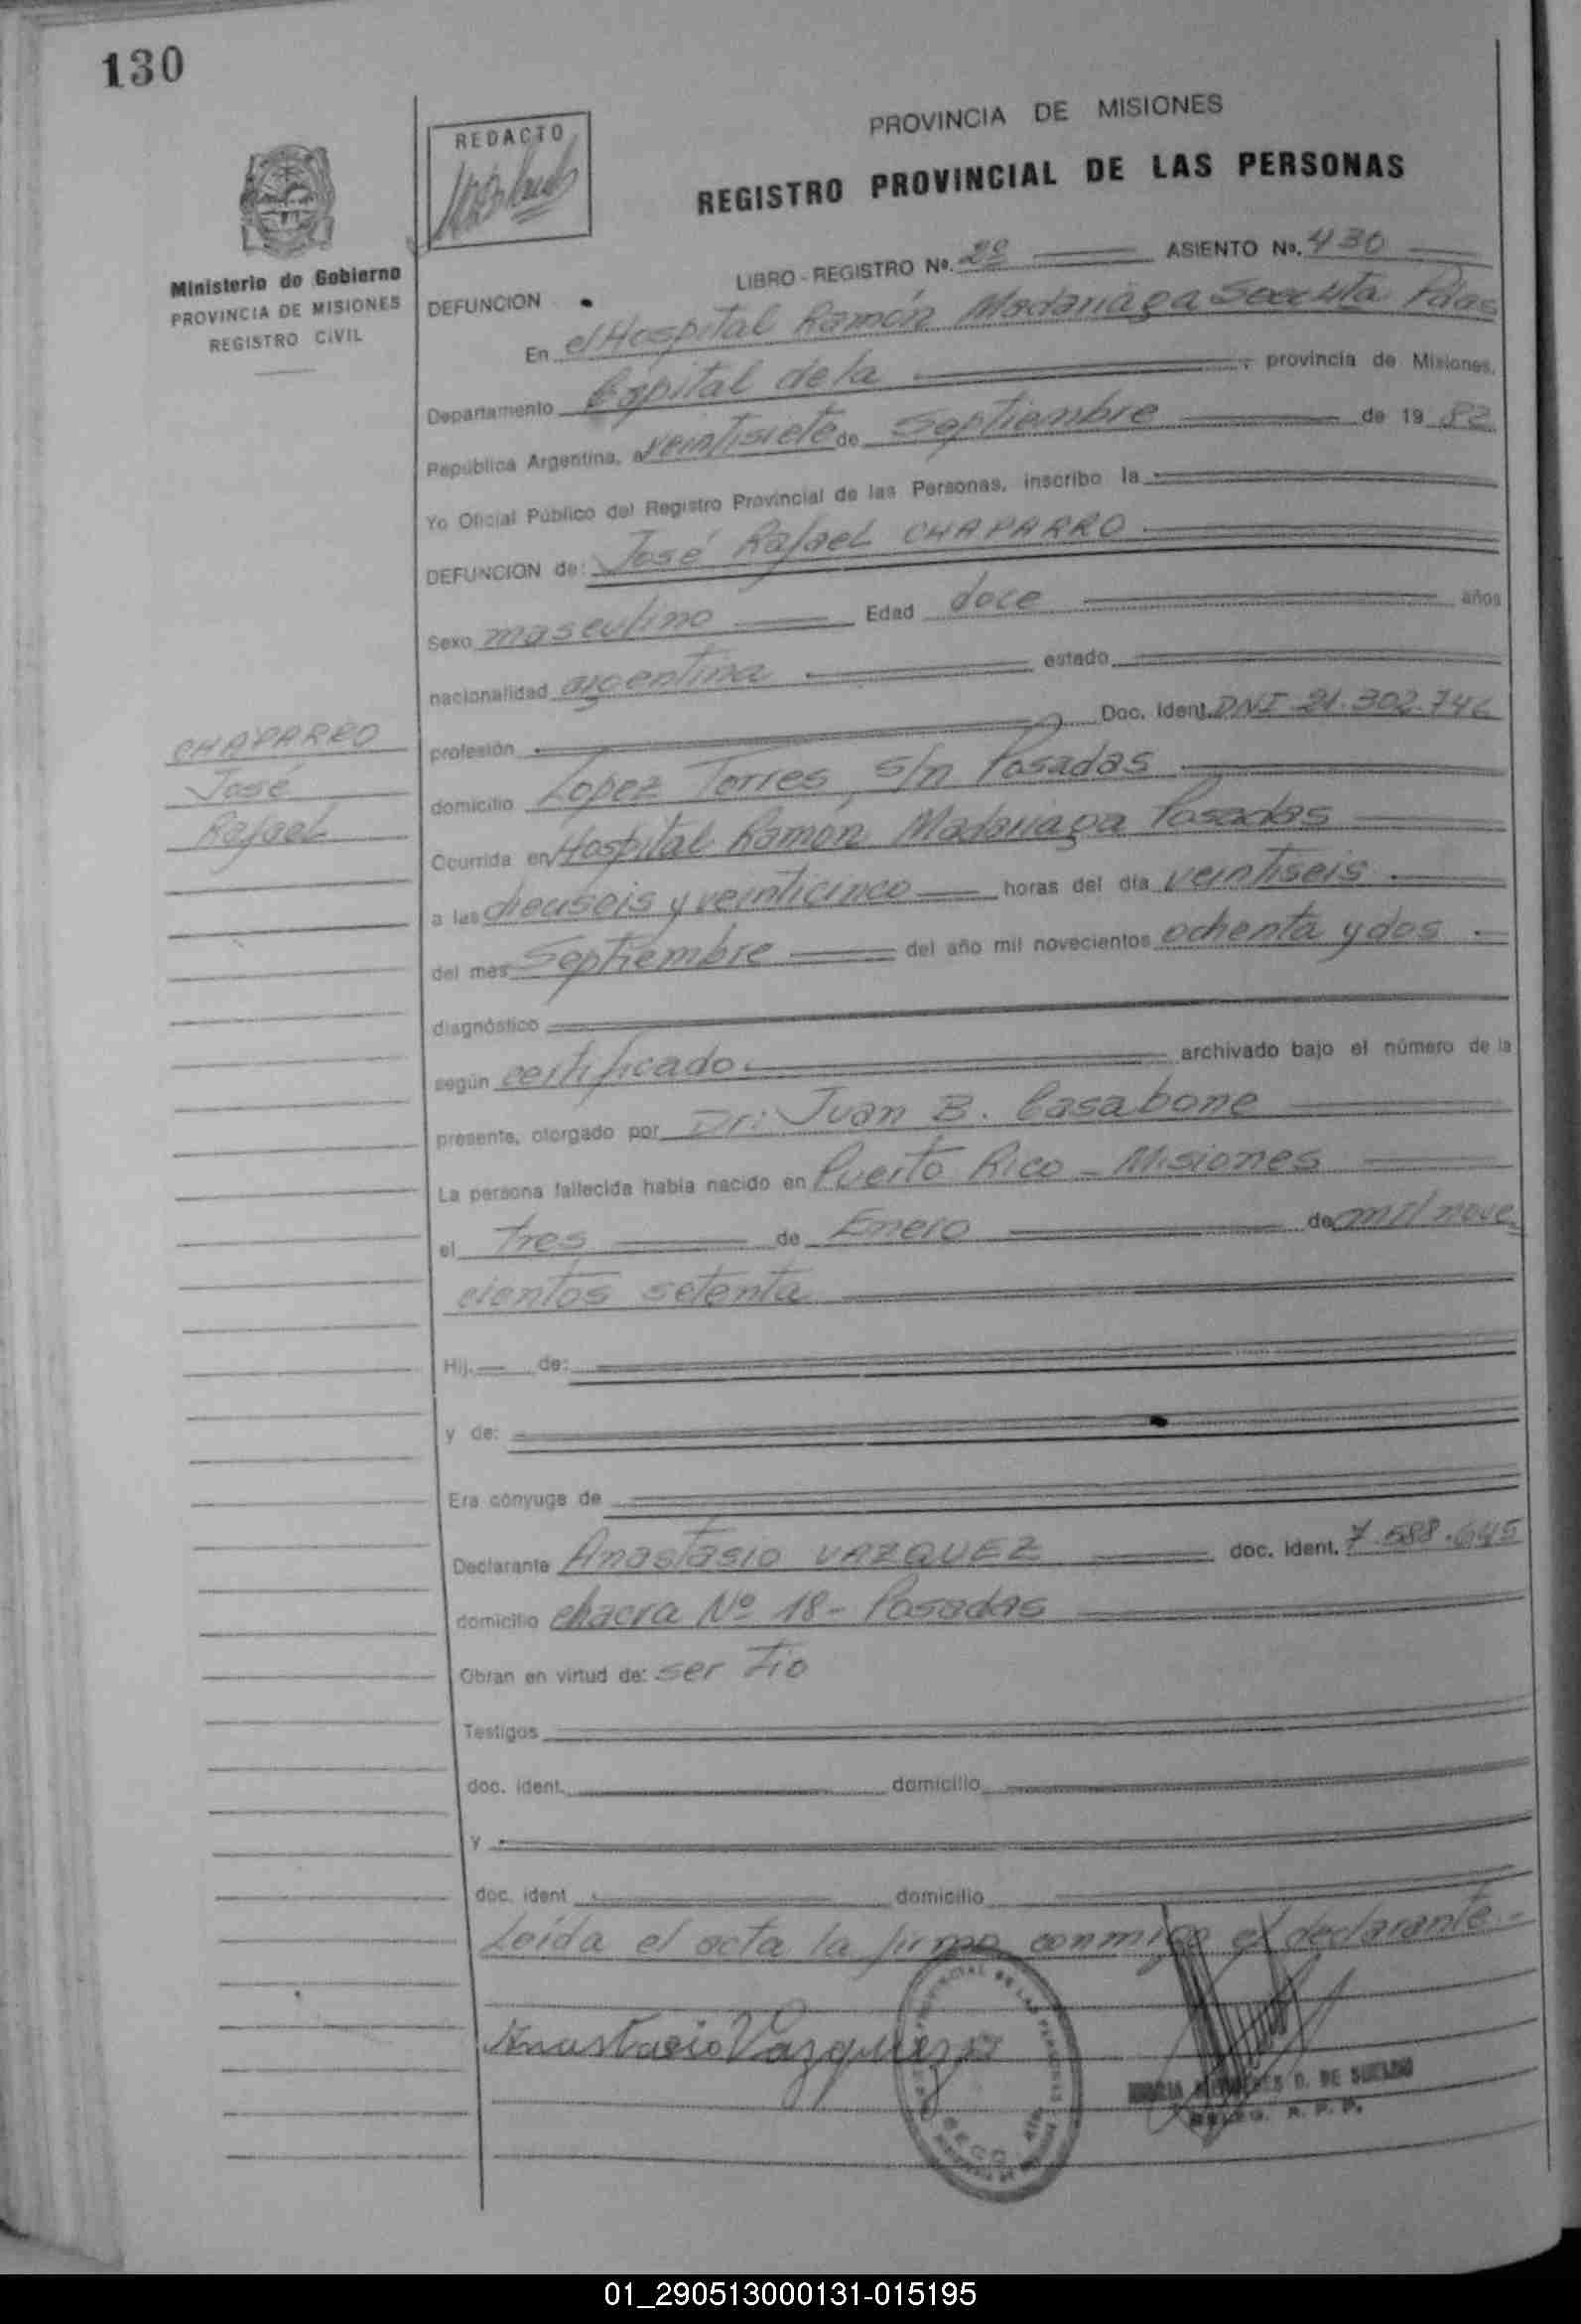 130
REDACTO
PROVINCIA DE MISIONES
REGISTRO PROVINCIAL DE LAS PERSONAS
Ministerio de Gobierno
PROVINCIA DE MISIONES
REGISTRO CIVIL
LIBRO - REGISTRO Nº. 2º ASIENTO Nº. 430
DEFUNCION
En el Hospital Ramón Madariaga Pdas
Departamento Capital de la provincia de Misiones,
República Argentina, a veintisiete de Septiembre de 19 82
Yo Oficial Público del Registro Provincial de las Personas, inscribo la
DEFUNCION de: José Rafael CHAPARRO
Sexo masculino Edad doce años
nacionalidad argentina estado
CHAPARRO
José
Rafael
profesión Doc. Ident. DNI 21.302.746
domicilio Lopez Torres, s/n Posadas
Ocurrida en Hospital Ramón Madariaga Posadas
a las dieciseis y veinticinco horas del día veintiseis
del mes Septiembre del año mil novecientos ochenta y dos
diagnóstico
según certificado archivado bajo el número de la
presente, otorgado por Dr: Juan B. Casabone
La persona fallecida había nacido en Puerto Rico - Misiones
el tres de Enero de mil nove
cientos setenta
Hij. de:
y de:
Era cónyuge de
Declarante Anastasio VAZQUEZ doc. ident. 7.588.645
domicilio chacra Nº 18 - Posadas
Obran en virtud de: ser tío
Testigos
doc. ident. domicilio
y
doc. ident domicilio
Leída el acta la firma conmigo el declarante.-
Anastacio Vazquez
PROVINCIAL DE LAS PERSONAS
D. DE SUELDO
DELEG. R. P. P.
01_290513000131-015195